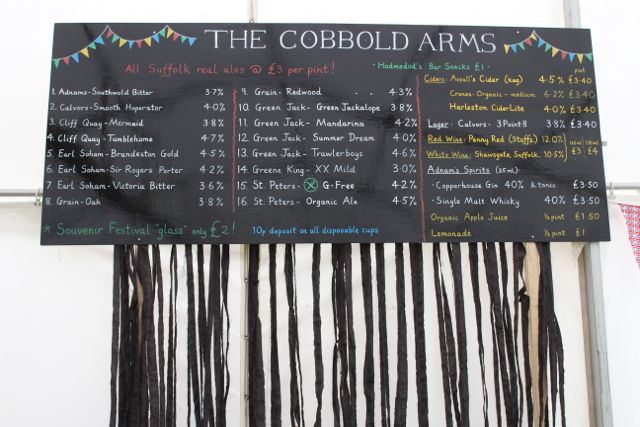 THE COBBOLD ARMS
All Suffolk real ales @ £3 per pint!
1. Adnams - Southwold Bitter 3·7%
2. Calvors - Smooth Hoperator 4·0%
3. Cliff Quay - Mermaid 3·8%
4. Cliff Quay - Tumblehome 4·7%
5. Earl Soham - Brandeston Gold 4·5%
6. Earl Soham - Sir Rogers Porter 4·2%
7. Earl Soham - Victoria Bitter 3·6%
8. Grain - Oak 3·8%
9. Grain - Redwood 4·3%
10. Green Jack - Green Jackalope 3·8%
11. Green Jack - Mandarina 4·2%
12. Green Jack - Summer Dream 4·0%
13. Green Jack - Trawlerboys 4·6%
14. Greene King - XX Mild 3·0%
15. St. Peters - G-Free 4·2%
16. St. Peters - Organic Ale 4·5%
* Souvenir Festival "glass" only £2!
10p deposit on all disposable cups
· Hodmedod's Bar Snacks £1 ·
pint
Ciders: Aspall's Cider (keg) 4·5% £3·40
Crones - Organic - medium 6·2% £3·40
Harleston Cider Lite 4·0% £3·40
Lager - Calvors - 3 Point 8 3·8% £3·40
Red Wine: Penny Red (Staffs) 12·0%
White Wine: Shawsgate, Suffolk 10·5% £3 £4
Adnams Spirits (25ml):
· Copperhouse Gin 40% & tonic £3·50
· Single Malt Whisky 40% £3·50
Organic Apple Juice ½ pint £1·50
Lemonade ½ pint £1